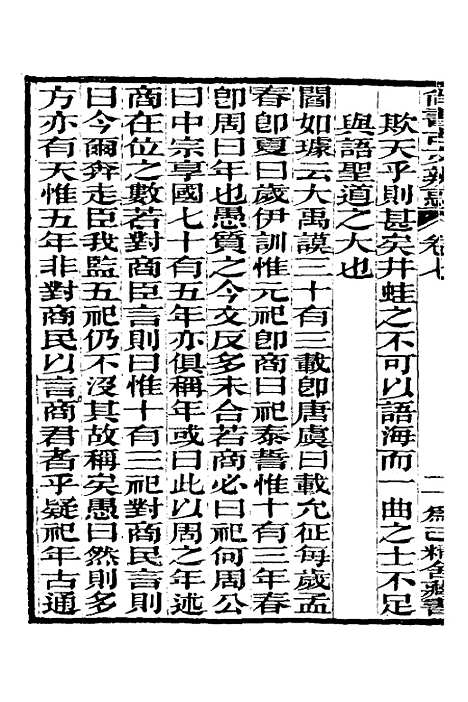 尚書古文辨惑 卷七 二 爲己精舍藏書
欺天乎則甚矣井蛙之不可以語海而一曲之士不足
與語聖道之大也
閻如璩云大禹謨三十有三載卽唐虞曰載允征每歲孟
春卽夏曰歲伊訓惟元祀卽商曰祀泰誓惟十有三年春
卽周曰年也愚質之今文反多未合若商必曰祀何周公
曰中宗享國七十有五年亦俱稱年或曰此以周之年述
商在位之數若對商臣言則曰惟十有三祀對商民言則
曰今爾奔走臣我監五祀仍不沒其故稱矣愚曰然則多
方亦有天惟五年非對商民以言商君者乎疑祀年古通